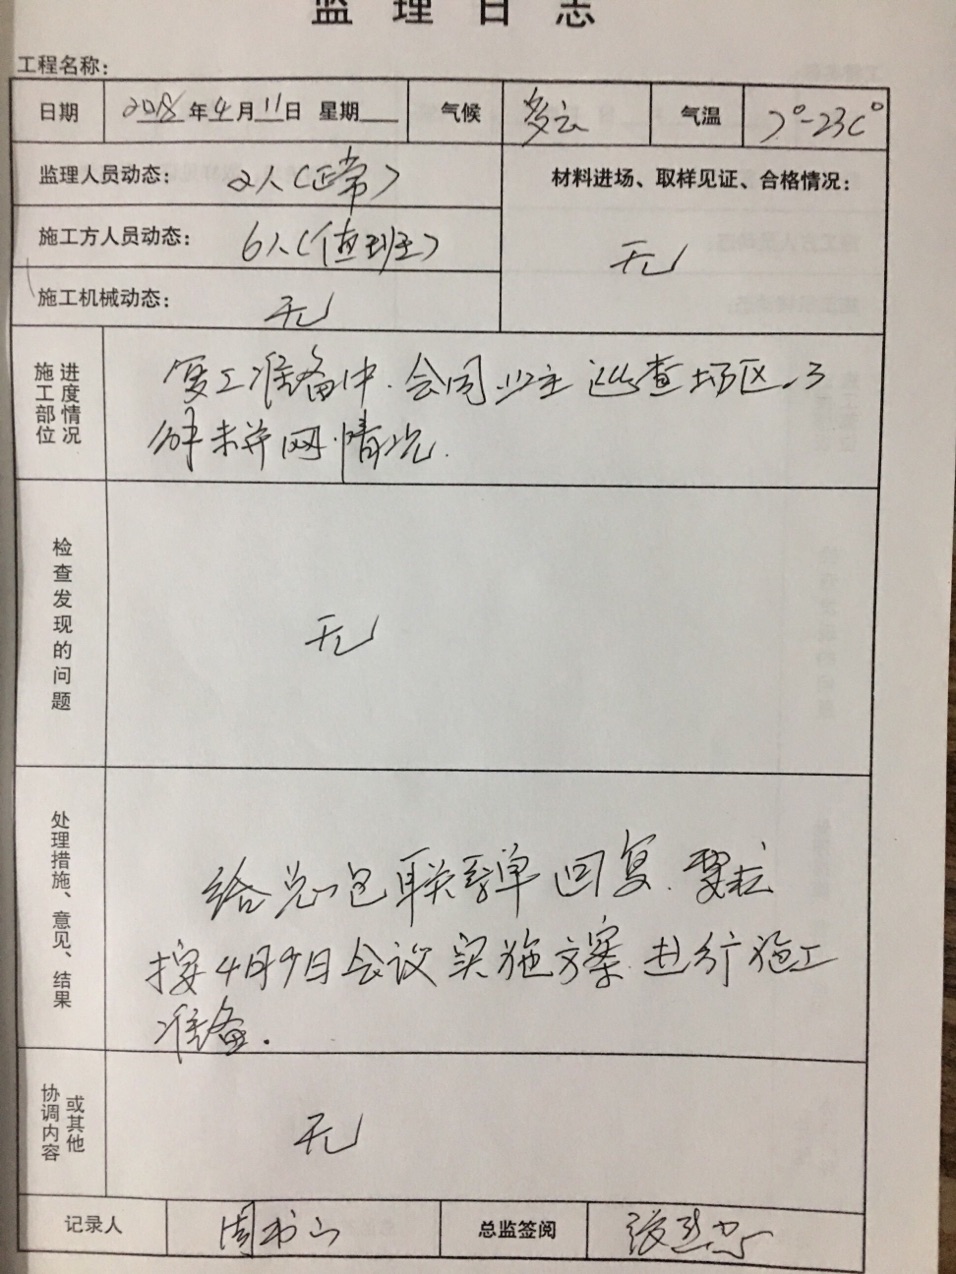 监理日志
工程名称:
日期 2018年4月11日 星期 气候 多云 气温 7°-23C°
监理人员动态: 2人(正常)
材料进场、取样见证、合格情况:
无
施工方人员动态: 6人(值班)
施工机械动态: 无
进度情况
施工部位
复工准备中.会同业主巡查场区、了
解未并网情况.
检查发现的问题
无
处理措施、意见、结果
给总包联系单回复.要求
按4月9日会议实施方案进行施工
准备.
或其他
协调内容
无
记录人 周书山 总监签阅